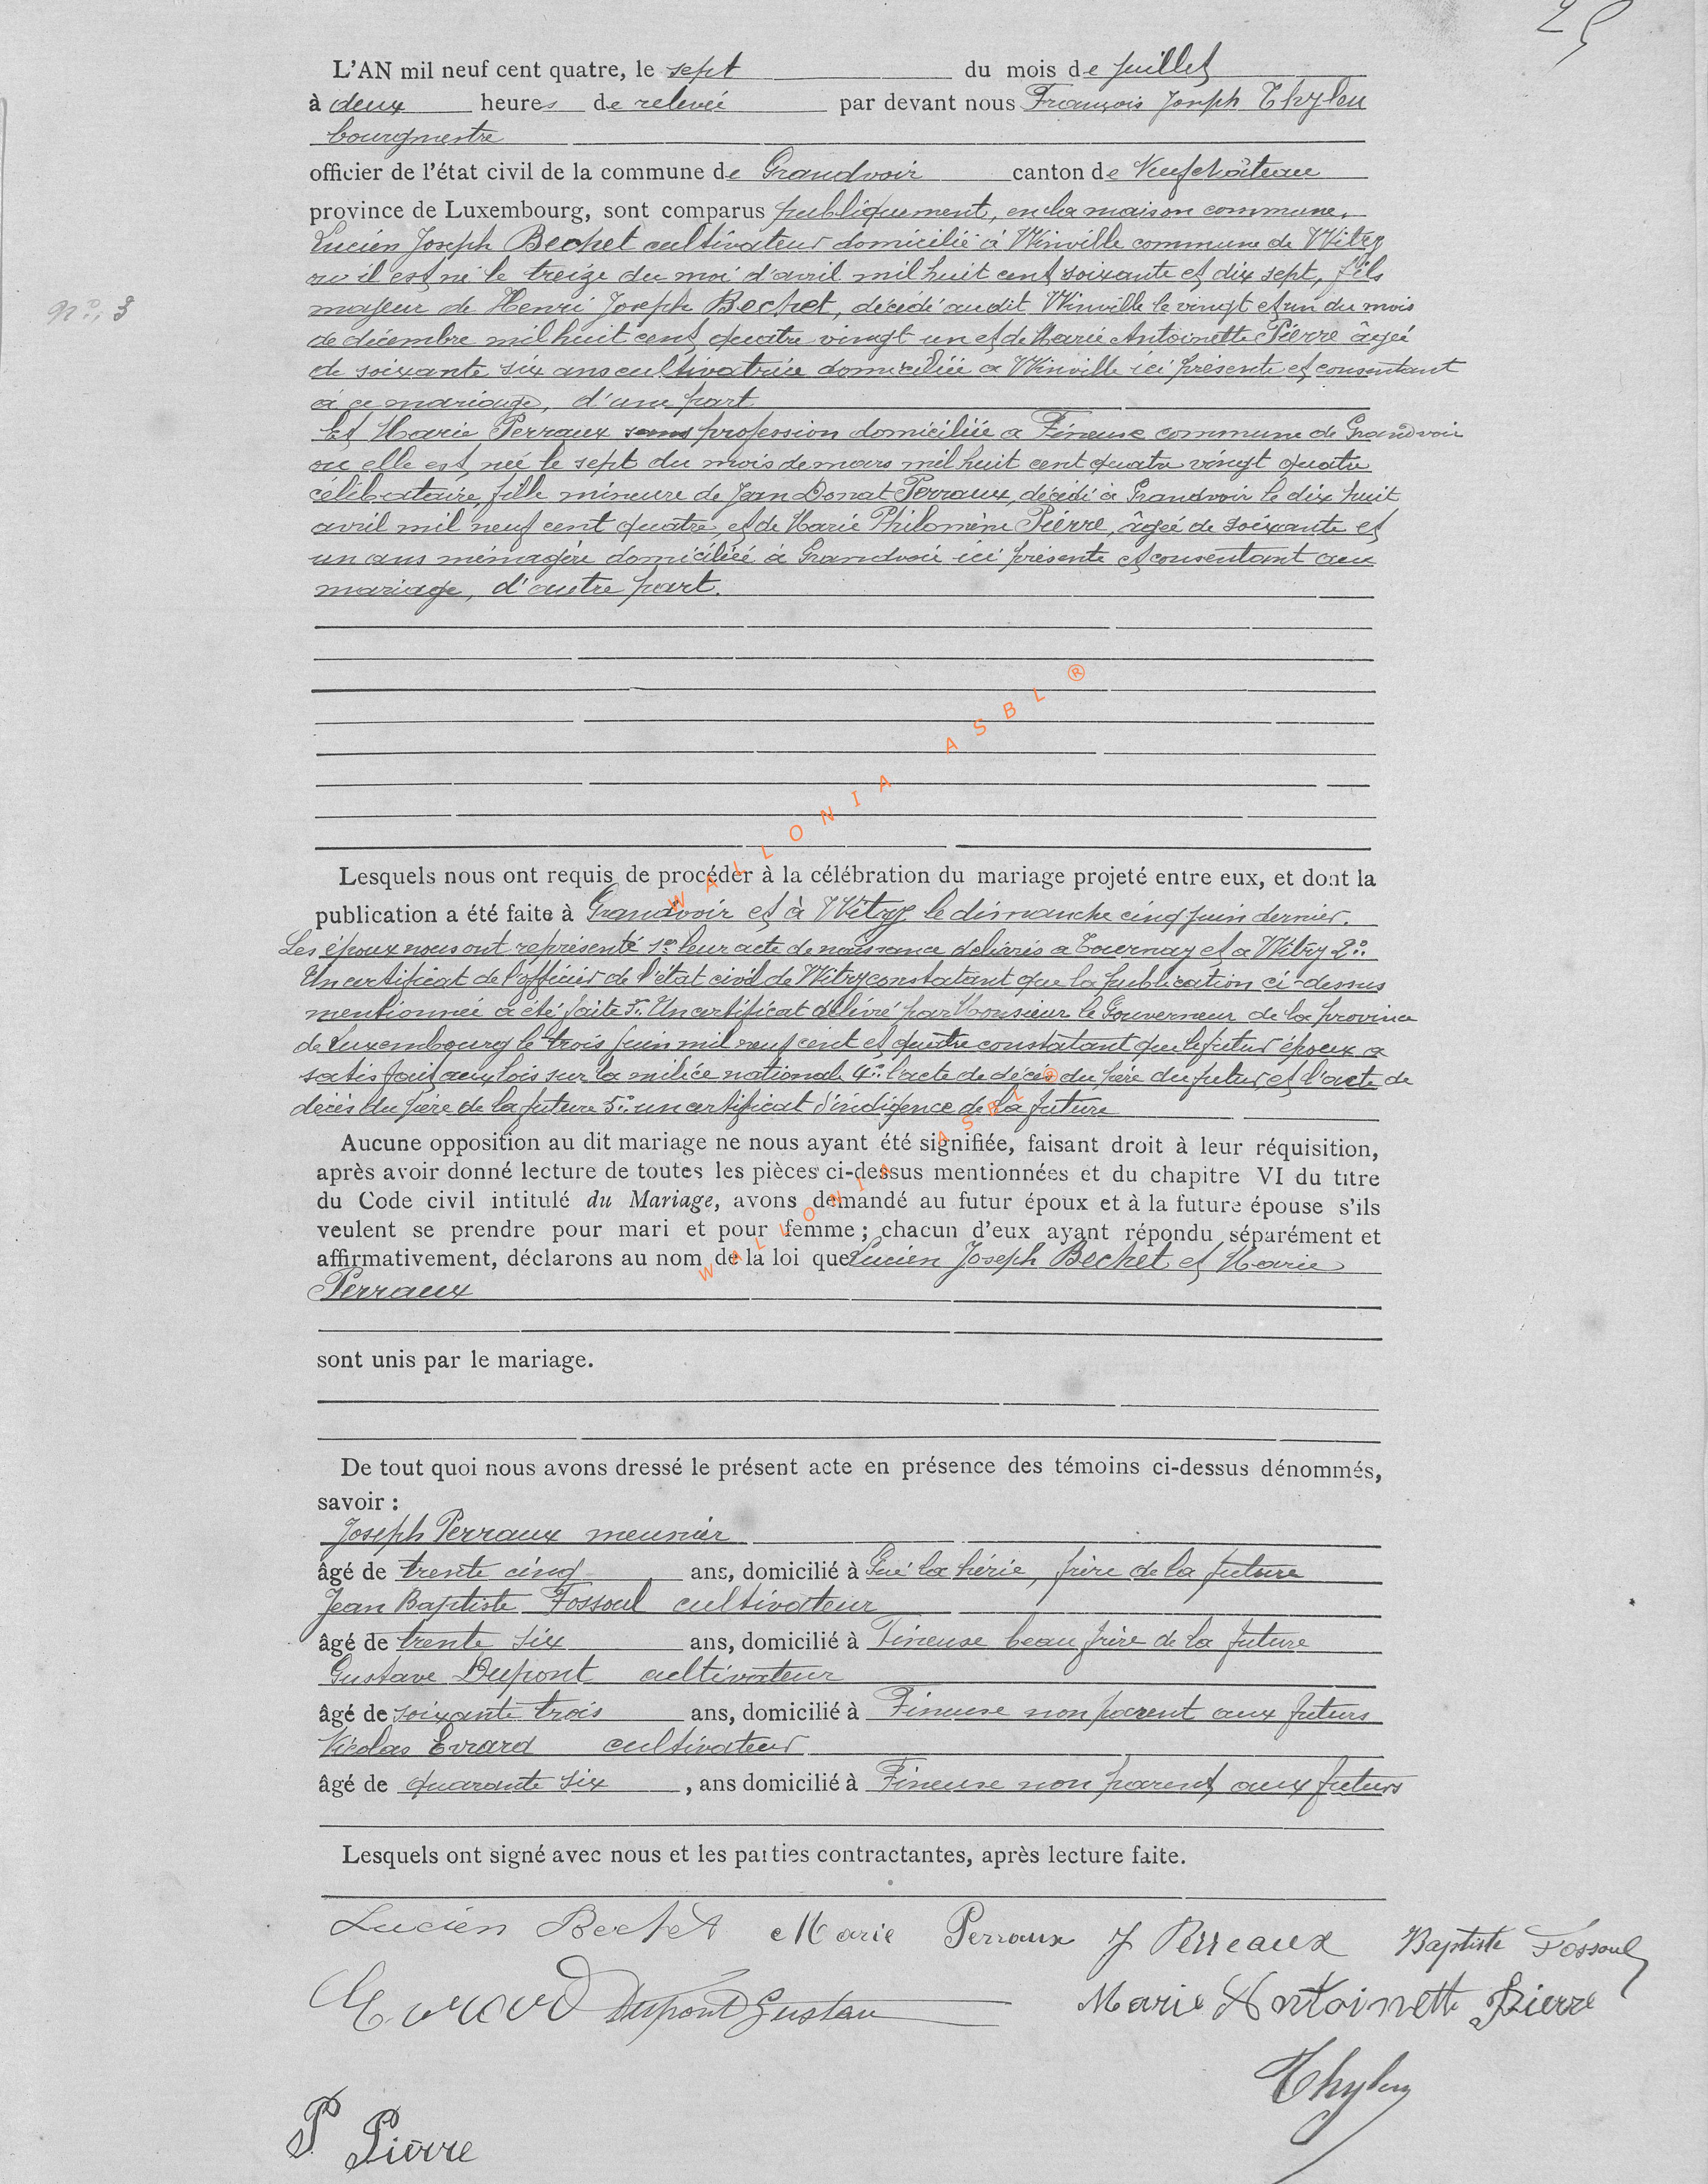 25
L'AN mil neuf cent quatre, le sept du mois de juillet
à deux heures de relevée par devant nous François Joseph Thylen
bourgmestre
officier de l'état civil de la commune de Grandvoir canton de Neufchâteau
province de Luxembourg, sont comparus publiquement, en la maison commune,
Lucien Joseph Bechet cultivateur domicilié à Winville commune de Witry
ou il est né le treize du moi d'avril mil huit cent soixante et dix sept, fils
majeur de Henri Joseph Bechet, décédé audit Winville le vingt et un du mois
de décembre mil huit cent quatre vingt un et de Marie Antoinette Pierre âgée
de soixante six ans cultivatrice domiciliée a Winville ici présente et consentant
à ce mariage, d'une part
Et Marie Perraux sans profession domiciliée a Fineuse commune de Grandvoir
ou elle est née le sept du mois de mars mil huit cent quatre vingt quatre
célibataire, fille mineure de Jean Donat Perraux, décédé à Grandvoir le dix huit
avril mil neuf cent quatre, et de Marie Philomène Pierre, âgée de soixante et
un ans ménagère domiciliée à Grandvoir ici présente et consentant au
mariage, d'autre part.
N°. 3
Lesquels nous ont requis de procéder à la célébration du mariage projeté entre eux, et dont la
publication a été faite à Grandvoir et à Witry le dimanche cinq juin dernier.
Les époux nous ont représenté 1° leur acte de naissance délivrés a Tournay et a Witry 2°.
Un certificat de l'officier de l'état civil de Witry constatant que la publication ci-dessus
mentionnée a été faite 3°. Un certificat délivré par Monsieur le Gouverneur de la province
de Luxembourg le trois juin mil neuf cent et quatre constatant que le futur époux a
satisfait aux lois sur la milice national 4°. l'acte de décès du père du futur, et l'acte de
décès du père de la future 5°. un certificat d'indigence de la future
Aucune opposition au dit mariage ne nous ayant été signifiée, faisant droit à leur réquisition,
après avoir donné lecture de toutes les pièces ci-dessus mentionnées et du chapitre VI du titre
du Code civil intitulé du Mariage, avons demandé au futur époux et à la future épouse s'ils
veulent se prendre pour mari et pour femme ; chacun d'eux ayant répondu séparément et
affirmativement, déclarons au nom de la loi que Lucien Joseph Bechet et Marie
Perraux
sont unis par le mariage.
De tout quoi nous avons dressé le présent acte en présence des témoins ci-dessus dénommés,
savoir :
Joseph Perraux meunier
âgé de trente cinq ans, domicilié à Gué la hérie, frère de la future
Jean Baptiste Fossoul cultivateur
âgé de trente six ans, domicilié à Fineuse beau frère de la future
Gustave Dupont cultivateur
âgé de soixante trois ans, domicilié à Fineuse non parent aux futurs
Nicolas Evrard cultivateur
âgé de quarante six , ans domicilié à Fineuse non parent aux futurs
Lesquels ont signé avec nous et les parties contractantes, après lecture faite.
Lucien Bechet Marie Perraux J Perreaux Baptiste Fossoul
Evrard Dupont Gustav Marie Antoinette Pierre
Thylen
P Pierre
WALLONIA ASBL ®
WALLONIA ASBL ®